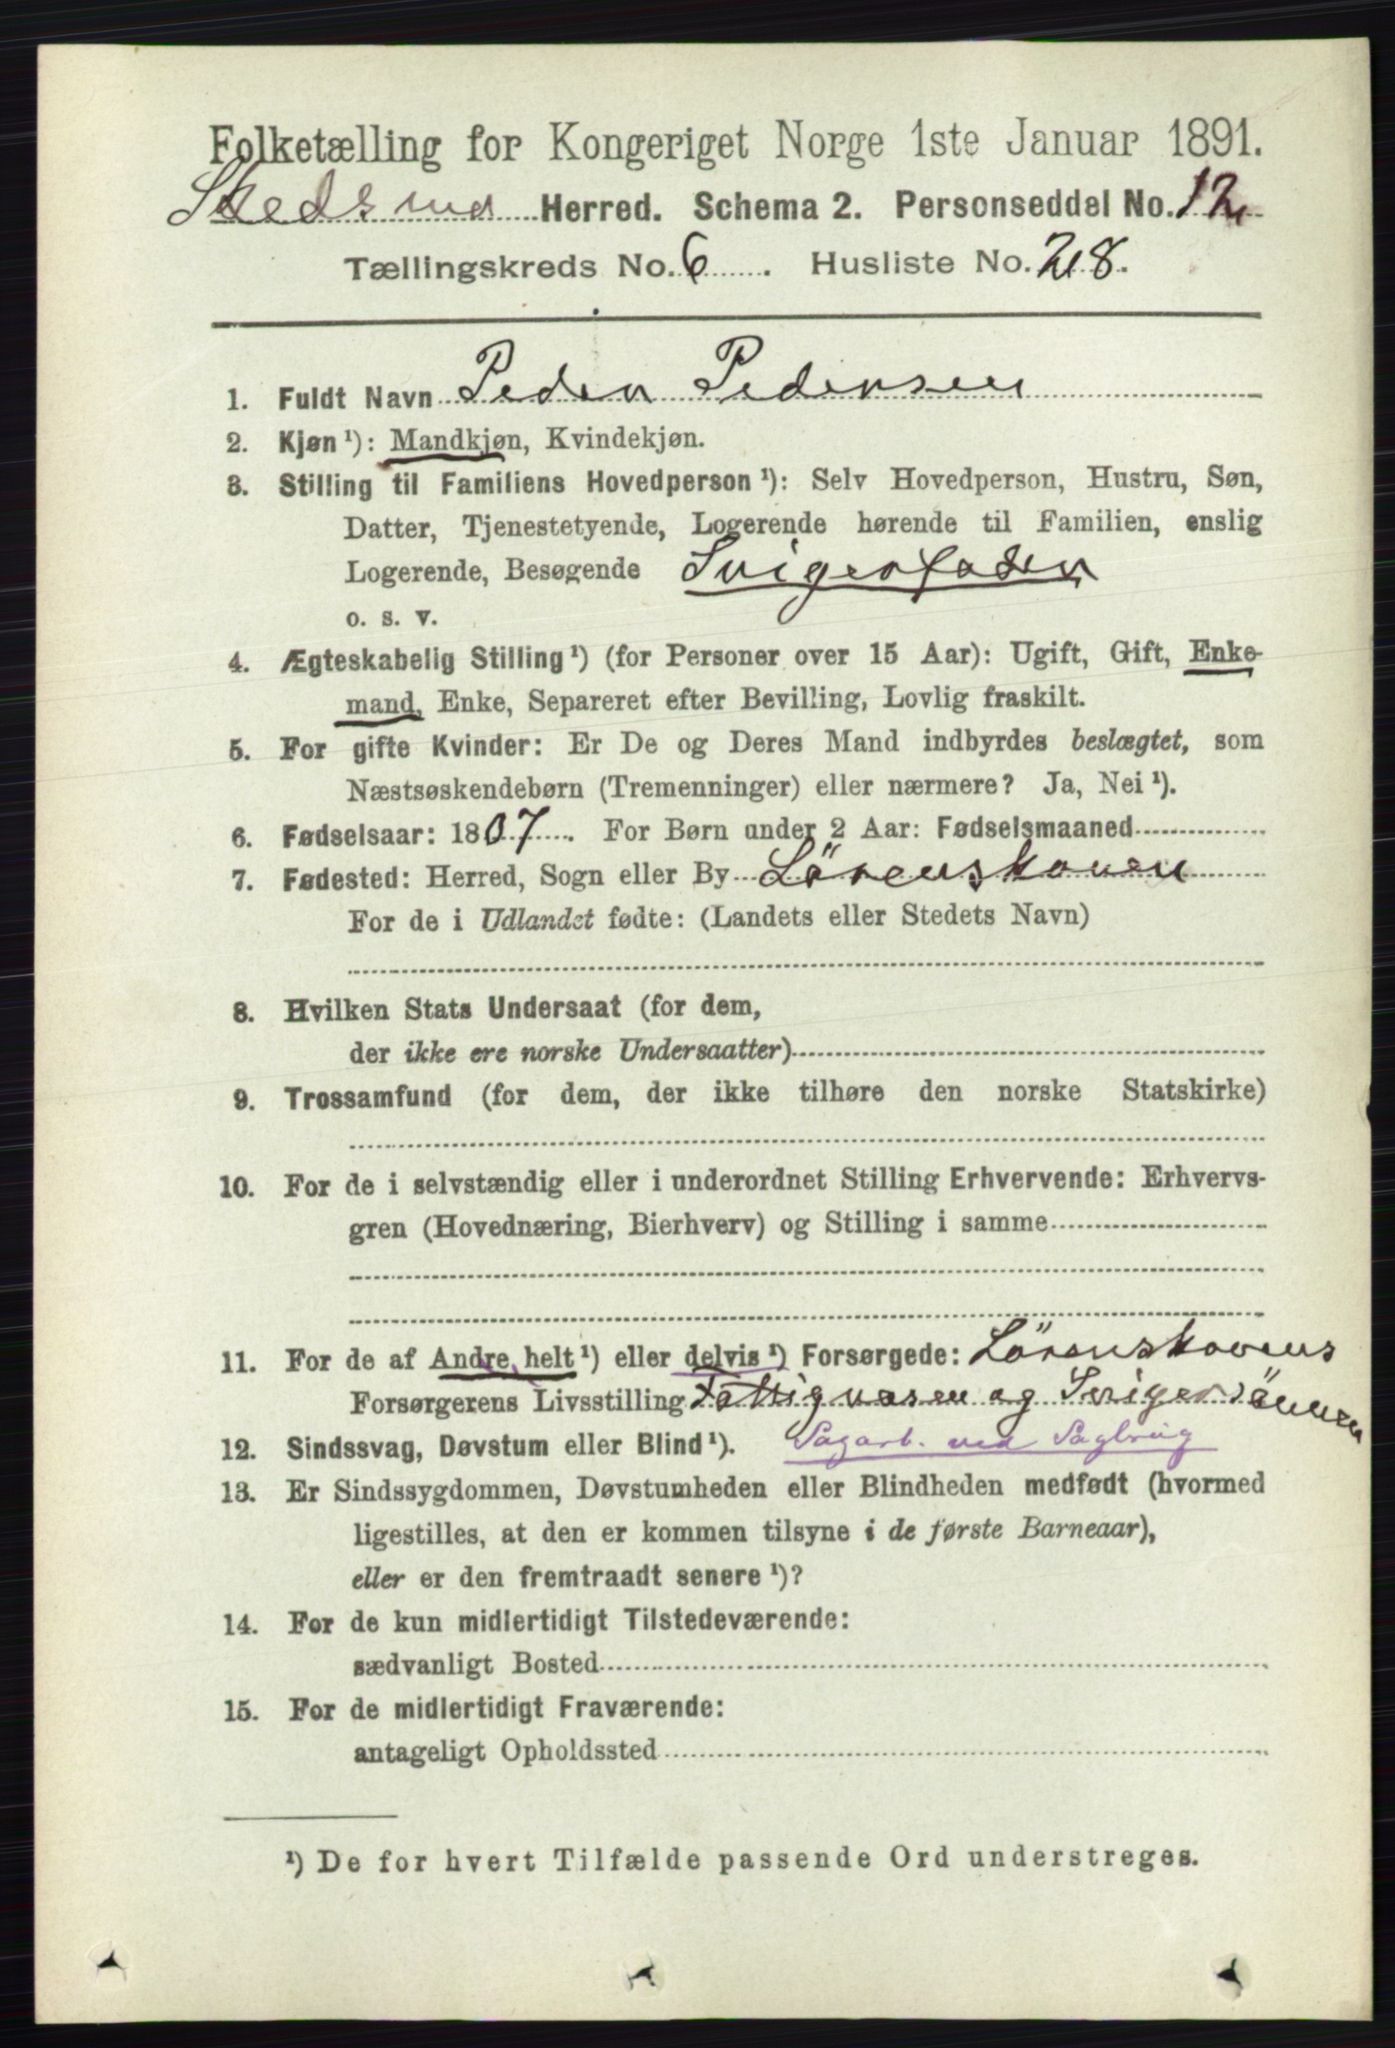 Folketælling for Kongeriget Norge 1ste Januar 1891.
Skedsmo Herred. Schema 2. Personseddel No. 12
Tællingskreds No. 6. Husliste No. 28.
1. Fuldt Navn Peder Pedersen
2. Kjøn ¹): Mandkjøn, Kvindekjøn.
3. Stilling til Familiens Hovedperson ¹): Selv Hovedperson, Hustru, Søn,
Datter, Tjenestetyende, Logerende hørende til Familien, enslig
Logerende, Besøgende Svigerfader
o. s. v.
4. Ægteskabelig Stilling ¹) (for Personer over 15 Aar): Ugift, Gift, Enke-
mand, Enke, Separeret efter Bevilling, Lovlig fraskilt.
5. For gifte Kvinder: Er De og Deres Mand indbyrdes beslægtet, som
Næstsøskendebørn (Tremenninger) eller nærmere? Ja, Nei ¹).
6. Fødselsaar: 1807. For Børn under 2 Aar: Fødselsmaaned
7. Fødested: Herred, Sogn eller By Lörenskoven
For de i Udlandet fødte: (Landets eller Stedets Navn)
8. Hvilken Stats Undersaat (for dem,
der ikke ere norske Undersaatter)
9. Trossamfund (for dem, der ikke tilhøre den norske Statskirke)
10. For de i selvstændig eller i underordnet Stilling Erhvervende: Erhvervs-
gren (Hovednæring, Bierhverv) og Stilling i samme
11. For de af Andre helt ¹) eller delvis ¹) Forsørgede: Lörenskovens
Forsørgerens Livsstilling Fattigvæsen og Svigersönnen
12. Sindssvag, Døvstum eller Blind ¹). Sagarb. ved Sagbrug
13. Er Sindssygdommen, Døvstumheden eller Blindheden medfødt (hvormed
ligestilles, at den er kommen tilsyne i de første Barneaar),
eller er den fremtraadt senere ¹)?
14. For de kun midlertidigt Tilstedeværende:
sædvanligt Bosted
15. For de midlertidigt Fraværende:
antageligt Opholdssted
¹) De for hvert Tilfælde passende Ord understreges.